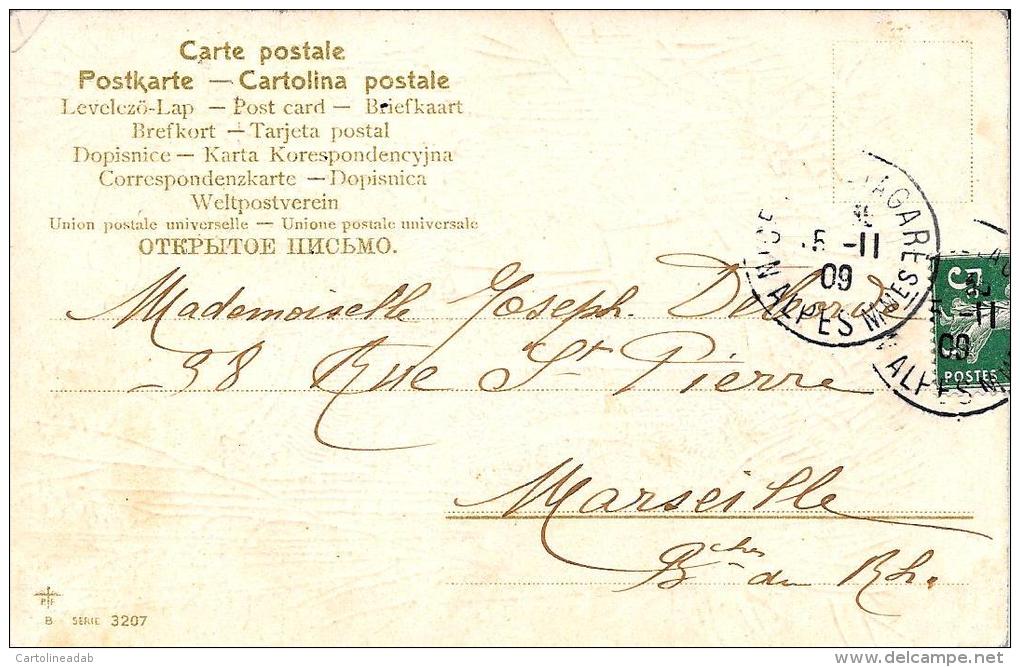 Carte postale
Postkarte — Cartolina postale
Levelező-Lap — Post card — Briefkaart
Brefkort — Tarjeta postal
Dopisnice — Karta Korespondencyjna
Correspondenzkarte — Dopisnica
Weltpostverein
Union postale universelle — Unione postale universale
ОТКРЫТОЕ ПИСЬМО.
5 -11
09
ALPES MMES
5
-11
09
POSTES
ALPES
Mademoiselle Joseph.
38 Rue St Pierre
Marseille
Bches du Rh.
B SERIE 3207
Cartolineadab
delcampe.net